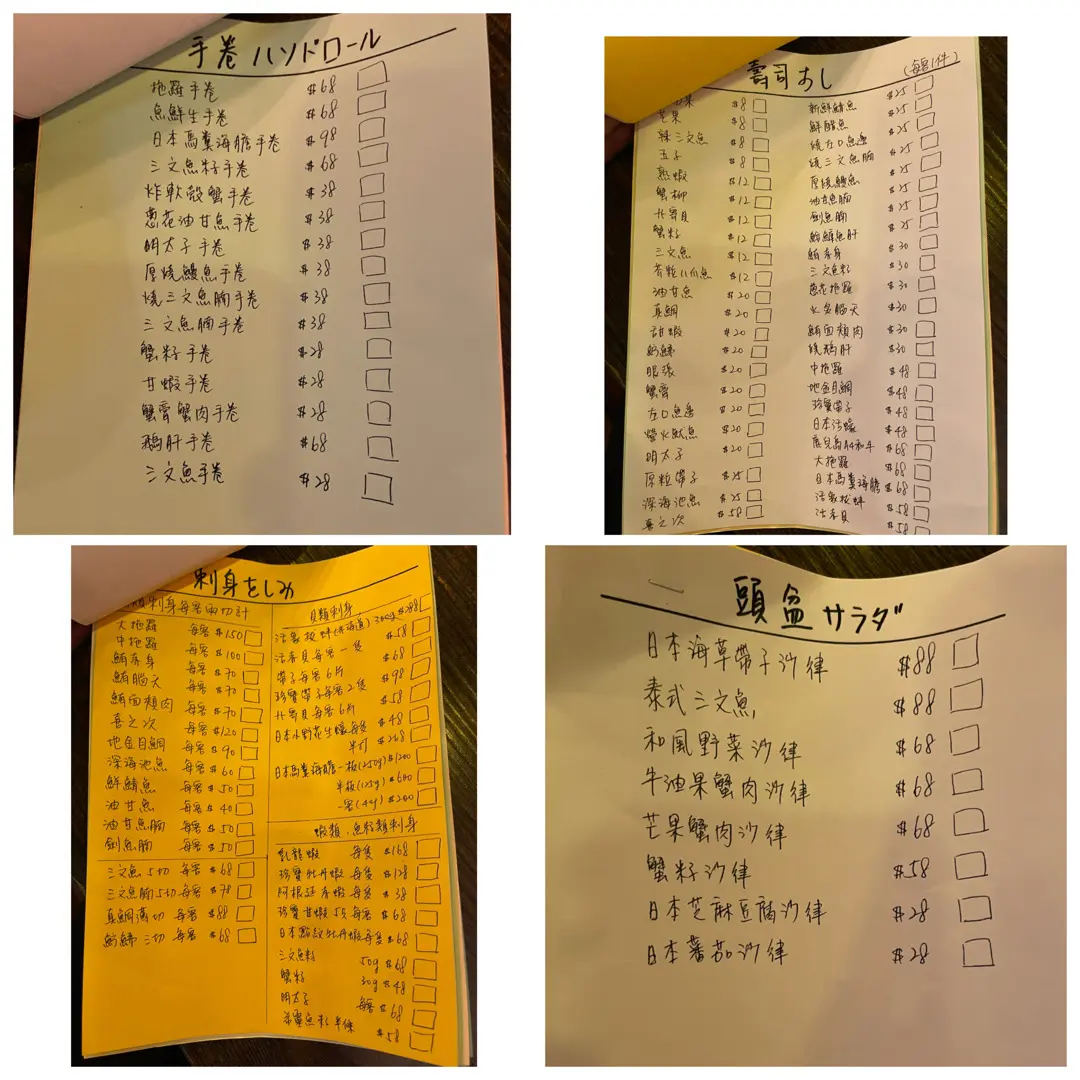 手巻ハンドロール
拖羅手巻 $68
魚鮮生手巻 $68
日本馬糞海膽手巻 $98
三文魚籽手巻 $68
炸軟殼蟹手巻 $38
蔥花油甘魚手巻 $38
明太子手巻 $38
厚燒鰻魚手巻 $38
燒三文魚腩手巻 $38
三文魚腩手巻 $38
蟹籽手巻 $28
甘蝦手巻 $28
蟹膏蟹肉手巻 $28
鵝肝手巻 $68
三文魚手巻 $28
壽司おし (每客1件)
$8
芒果 $8
辣三文魚 $8
玉子 $8
熟蝦 $12
蟹柳 $12
北寄貝 $12
蟹籽 $12
三文魚 $12
芥辣八爪魚 $12
油甘魚 $20
真鯛 $20
甜蝦 $20
鰤魚 $20
帆張 $20
蟹膏 $20
左口魚邊 $20
螢火魷魚 $20
明太子 $20
原粒帶子 $25
深海池魚 $25
喜之次 $58
新鮮鯖魚 $25
鮮醋魚 $25
燒左口魚邊 $25
燒三文魚腩 $25
厚燒鰻魚 $25
油甘魚腩 $25
劍魚腩 $25
鮟鱇魚肝 $30
鮪赤身 $30
三文魚籽 $30
蔥花拖羅 $30
火炙腦天 $30
鮪面頰肉 $30
燒鵝肝 $30
中拖羅 $48
地金目鯛 $48
珍寶帶子 $48
日本活蠔 $48
鹿兒島A4和牛 $68
大拖羅 $68
日本馬糞海膽 $68
活象拔蚌 $58
活赤貝 $58
刺身をしみ
類刺身每客兩切計
大拖羅 每客 $150
中拖羅 每客 $100
鮪赤身 每客 $70
鮪腦天 每客 $70
鮪面頰肉 每客 $70
喜之次 每客 $120
地金目鯛 每客 $90
深海池魚 每客 $60
鮮鯖魚 每客 $50
油甘魚 每客 $40
油甘魚腩 每客 $50
劍魚腩 每客 $50
三文魚5切 每客 $68
三文魚腩5切 每客 $78
真鯛薄切 每客 $88
三切 每客 $68
貝類刺身
活象拔蚌(北海道)300g $288
活赤貝每客一隻 $58
帶子每客6片 $68
珍寶帶子每客2隻 $98
北寄貝每客6片 $58
日本小野花生蠔每隻 $48
半打 $268
日本馬糞海膽一板(250g) $1200
半板(125g) $600
一客(40g) $200
蝦類、魚籽類刺身
龍蝦 每隻 $168
珍寶牡丹蝦 每隻 $128
阿根廷赤蝦 每隻 $38
珍寶甘蝦5只 每客 $68
日本點紋牡丹蝦每隻 $68
三文魚籽 50g $68
蟹籽 30g $48
明太子 每客 $68
希靈魚籽半條 $58
頭盆サラダ
日本海草帶子沙律 $88
泰式三文魚 $88
和風野菜沙律 $68
牛油果蟹肉沙律 $68
芒果蟹肉沙律 $68
蟹籽沙律 $58
日本芝麻豆腐沙律 $28
日本蕃茄沙律 $28